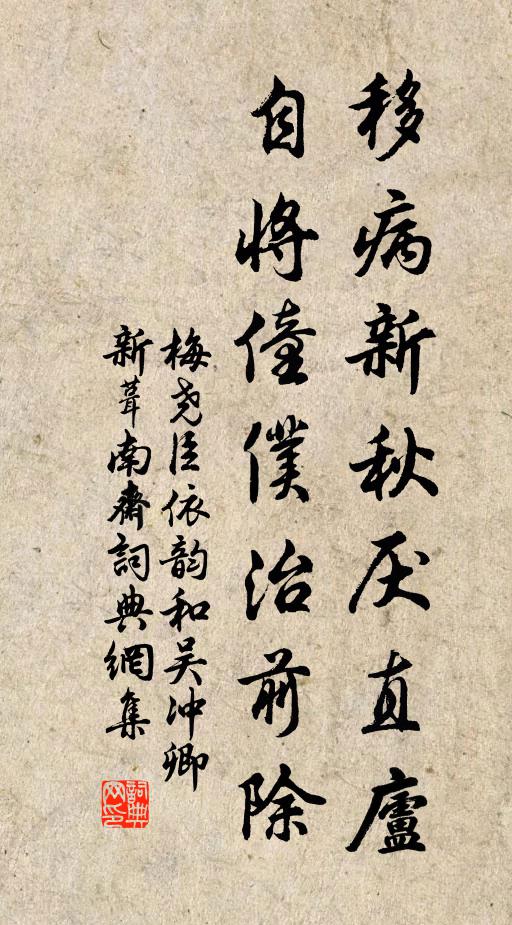 移病新秋厌直廬
自将僮僕治前除
梅尧臣依韵和吴冲卿
新葺南齋詞典網集
詞典网印